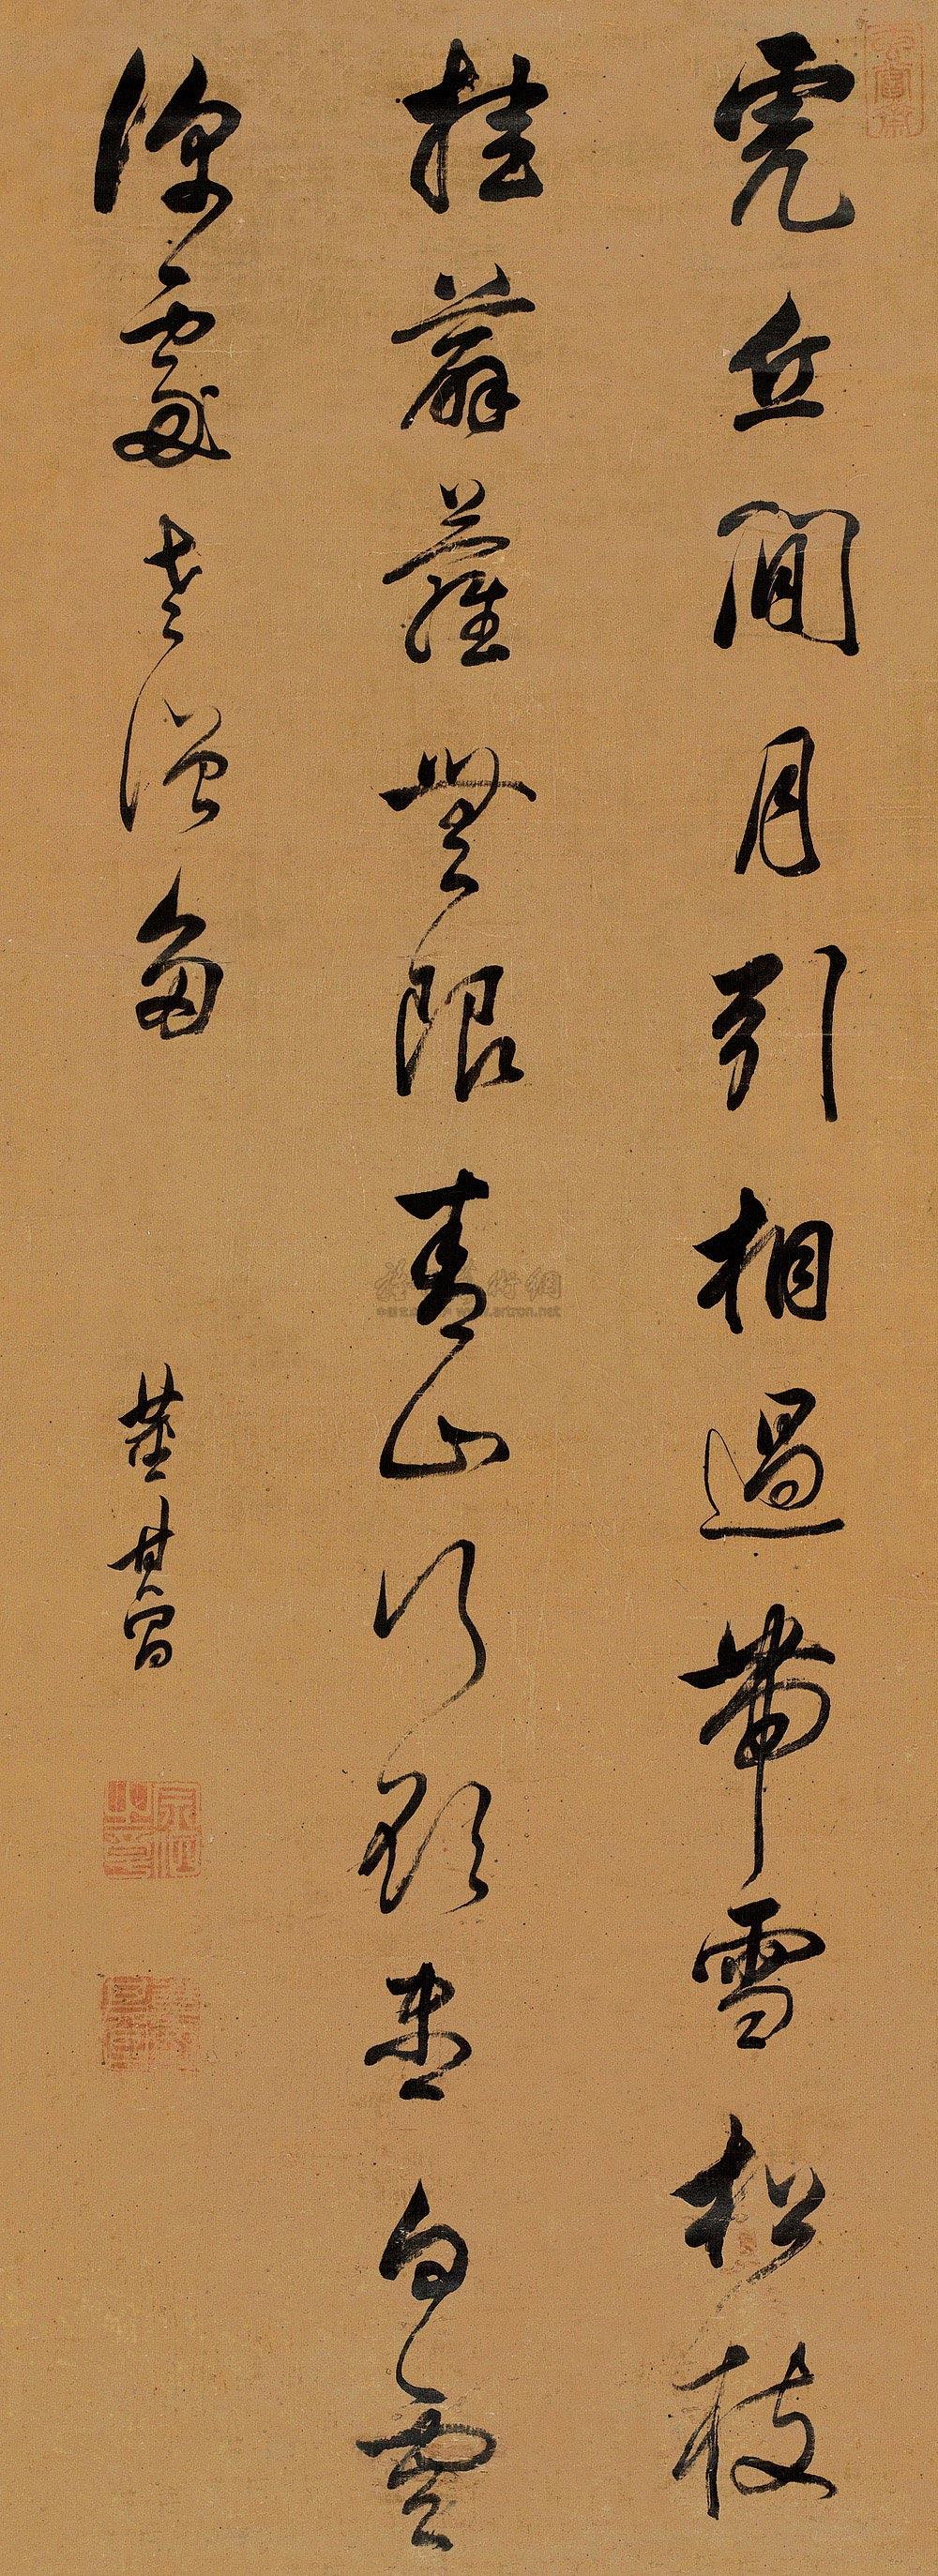 虎丘閒月引相過帶雪松枝
挂薜蘿無限青山行欲盡白雲
深處老僧多
董其昌
www.artron.net